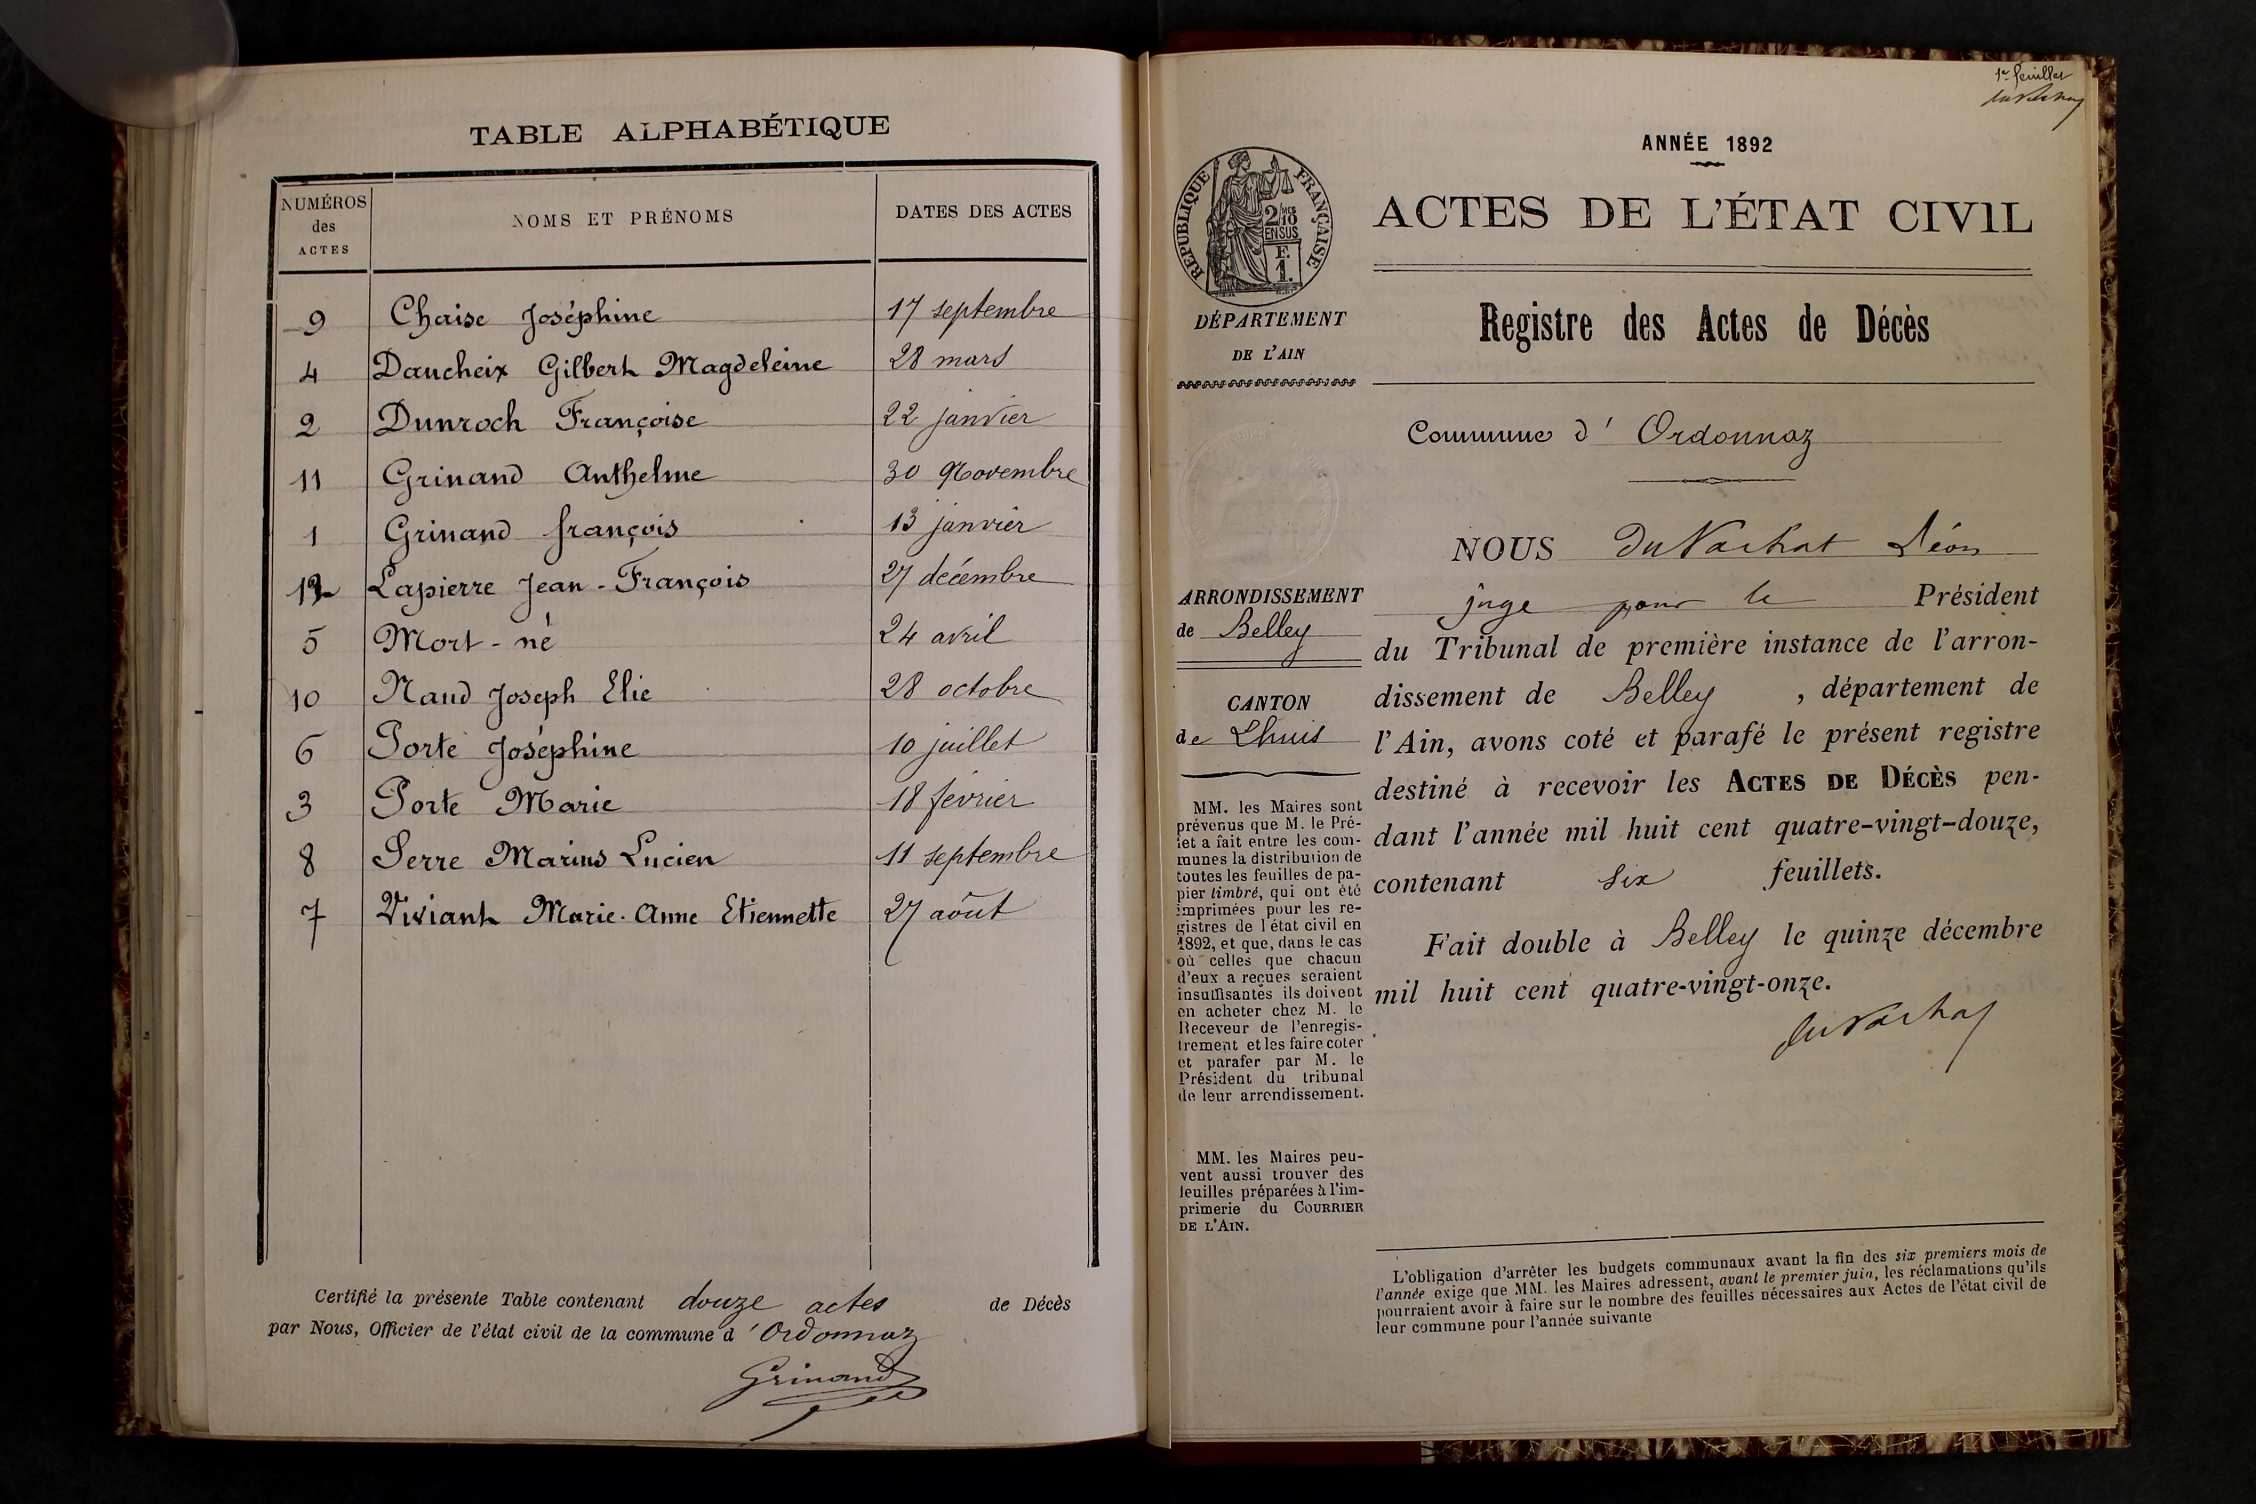 TABLE ALPHABÉTIQUE
NUMÉROS
des
ACTES
NOMS ET PRÉNOMS
DATES DES ACTES
9 Chaise Joséphine 17 septembre
4 Daucheix Gilbert Magdeleine 28 mars
2 Dunroch Françoise 22 janvier
11 Grinand Anthelme 30 Novembre
1 Grinand françois 13 janvier
12 Lapierre Jean-François 27 décembre
5 Mort-né 24 avril
10 Naud Joseph Elie 28 octobre
6 Porte Joséphine 10 juillet
3 Porte Marie 18 février
8 Serre Marius Lucien 11 septembre
7 Viviant Marie-Anne Etiennette 27 aôut
Certifié la présente Table contenant douze actes de Décès
par Nous, Officier de l'état civil de la commune d'Ordonnaz
Grinand
1er feuillet
ANNÉE 1892
RÉPUBLIQUE FRANÇAISE
2/10 MES
EN SUS
F.
1.
DÉPARTEMENT
DE L'AIN
ACTES DE L'ÉTAT CIVIL
Registre des Actes de Décès
Commune d'Ordonnaz
ARRONDISSEMENT
de Belley
CANTON
de Lhuis
MM. les Maires sont
prévenus que M. le Pré-
fet a fait entre les com-
munes la distribution de
toutes les feuilles de pa-
pier timbré, qui ont été
imprimées pour les re-
gistres de l'état civil en
1892, et que, dans le cas
où celles que chacun
d'eux a reçues seraient
insuffisantes ils doivent
en acheter chez M. le
Receveur de l'enregis-
trement et les faire coter
et parafer par M. le
Président du tribunal
de leur arrondissement.
MM. les Maires peu-
vent aussi trouver des
feuilles préparées à l'im-
primerie du COURRIER
DE L'AIN.
NOUS Du Vachat Léon
juge pour le Président
du Tribunal de première instance de l'arron-
dissement de Belley, département de
l'Ain, avons coté et parafé le présent registre
destiné à recevoir les ACTES DE DÉCÈS pen-
dant l'année mil huit cent quatre-vingt-douze,
contenant six feuillets.
Fait double à Belley le quinze décembre
mil huit cent quatre-vingt-onze.
du Vachat
L'obligation d'arrêter les budgets communaux avant la fin des six premiers mois de
l'année exige que MM. les Maires adressent, avant le premier juin, les réclamations qu'ils
pourraient avoir à faire sur le nombre des feuilles nécessaires aux Actes de l'état civil de
leur commune pour l'année suivante